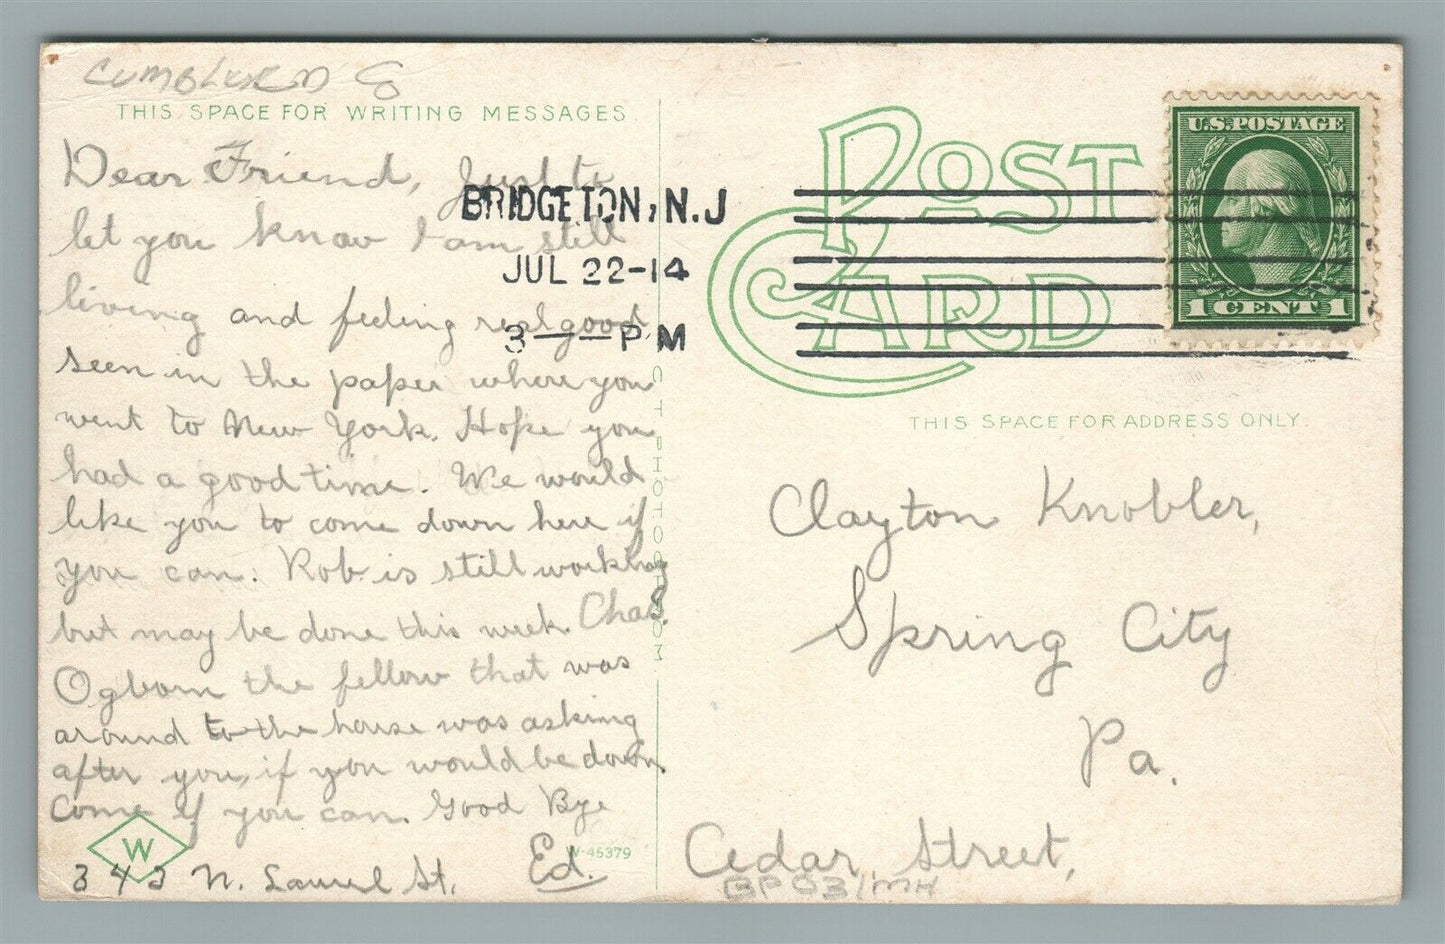 CUMBLURLD CO
THIS SPACE FOR WRITING MESSAGES.
Dear Friend, Just to
let you know I am still
living and feeling real good
seen in the paper where you
went to New York. Hope you
had a good time. We would
like you to come down here if
you can. Rob is still working
but may be done this week. Chas.
Ogborn the fellow that was
around to the house was asking
after you, if you would be down.
Come if you can. Good Bye
Ed.
343 N. Laurel St.
W
W-45379
C T PHOTOCHROM
BRIDGETON, N.J
JUL 22-14
3 — P M
POST CARD
U.S. POSTAGE
1 CENT 1
THIS SPACE FOR ADDRESS ONLY.
Clayton Knobler,
Spring City
Pa.
Cedar Street,